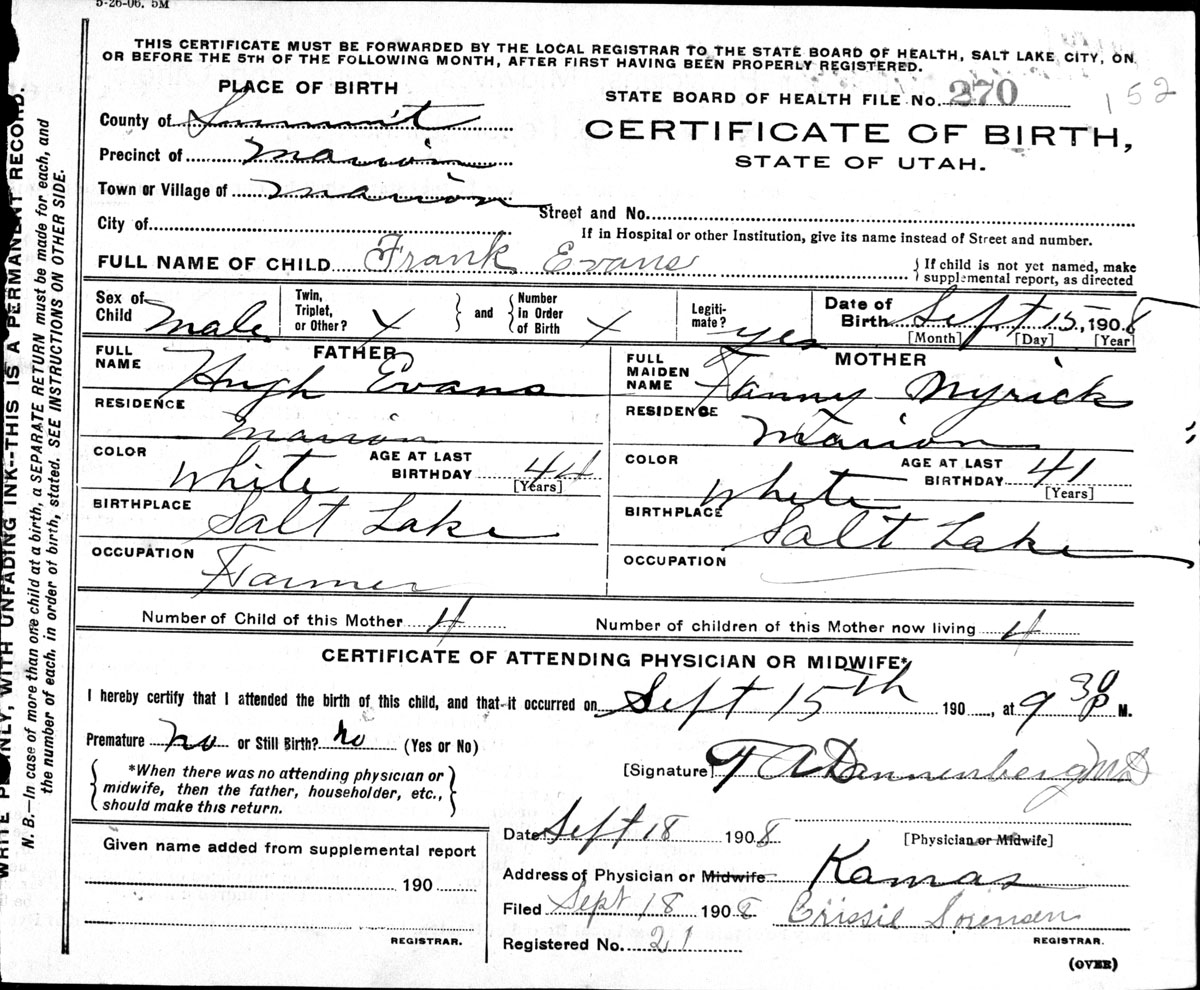 5-26-06. 5M
THIS CERTIFICATE MUST BE FORWARDED BY THE LOCAL REGISTRAR TO THE STATE BOARD OF HEALTH, SALT LAKE CITY, ON
OR BEFORE THE 5TH OF THE FOLLOWING MONTH, AFTER FIRST HAVING BEEN PROPERLY REGISTERED.
PLACE OF BIRTH
STATE BOARD OF HEALTH FILE No. 270 152
County of Summit
CERTIFICATE OF BIRTH,
STATE OF UTAH.
Precinct of Marion
Town or Village of Marion
Street and No.
City of
If in Hospital or other Institution, give its name instead of Street and number.
FULL NAME OF CHILD Frank Evans
If child is not yet named, make
supplemental report, as directed
Sex of Child Male
Twin, Triplet, or Other? X and Number in Order of Birth X
Legitimate? yes
Date of Birth Sept 15, 1908
[Month] [Day] [Year]
FATHER
FULL NAME Hugh Evans
RESIDENCE Marion
COLOR White AGE AT LAST BIRTHDAY 44
[Years]
BIRTHPLACE Salt Lake
OCCUPATION Farmer
MOTHER
FULL MAIDEN NAME Fanny Myrick
RESIDENCE Marion
COLOR White AGE AT LAST BIRTHDAY 41
[Years]
BIRTHPLACE Salt Lake
OCCUPATION
Number of Child of this Mother 4 Number of children of this Mother now living 4
CERTIFICATE OF ATTENDING PHYSICIAN OR MIDWIFE*
I hereby certify that I attended the birth of this child, and that it occurred on Sept 15th 190 , at 9 30 P M.
Premature no or Still Birth? no (Yes or No)
*When there was no attending physician or
midwife, then the father, householder, etc.,
should make this return.
[Signature] Dannenberg MD
[Physician or Midwife]
Date Sept 18 1908
Given name added from supplemental report
190
REGISTRAR.
Address of Physician or Midwife Kamas
Filed Sept 18 1908 Crissie Sorensen
Registered No. 21
REGISTRAR.
(OVER)
WRITE PLAINLY, WITH UNFADING INK--THIS IS A PERMANENT RECORD.
N. B.—In case of more than one child at a birth, a SEPARATE RETURN must be made for each, and
the number of each, in order of birth, stated. SEE INSTRUCTIONS ON OTHER SIDE.